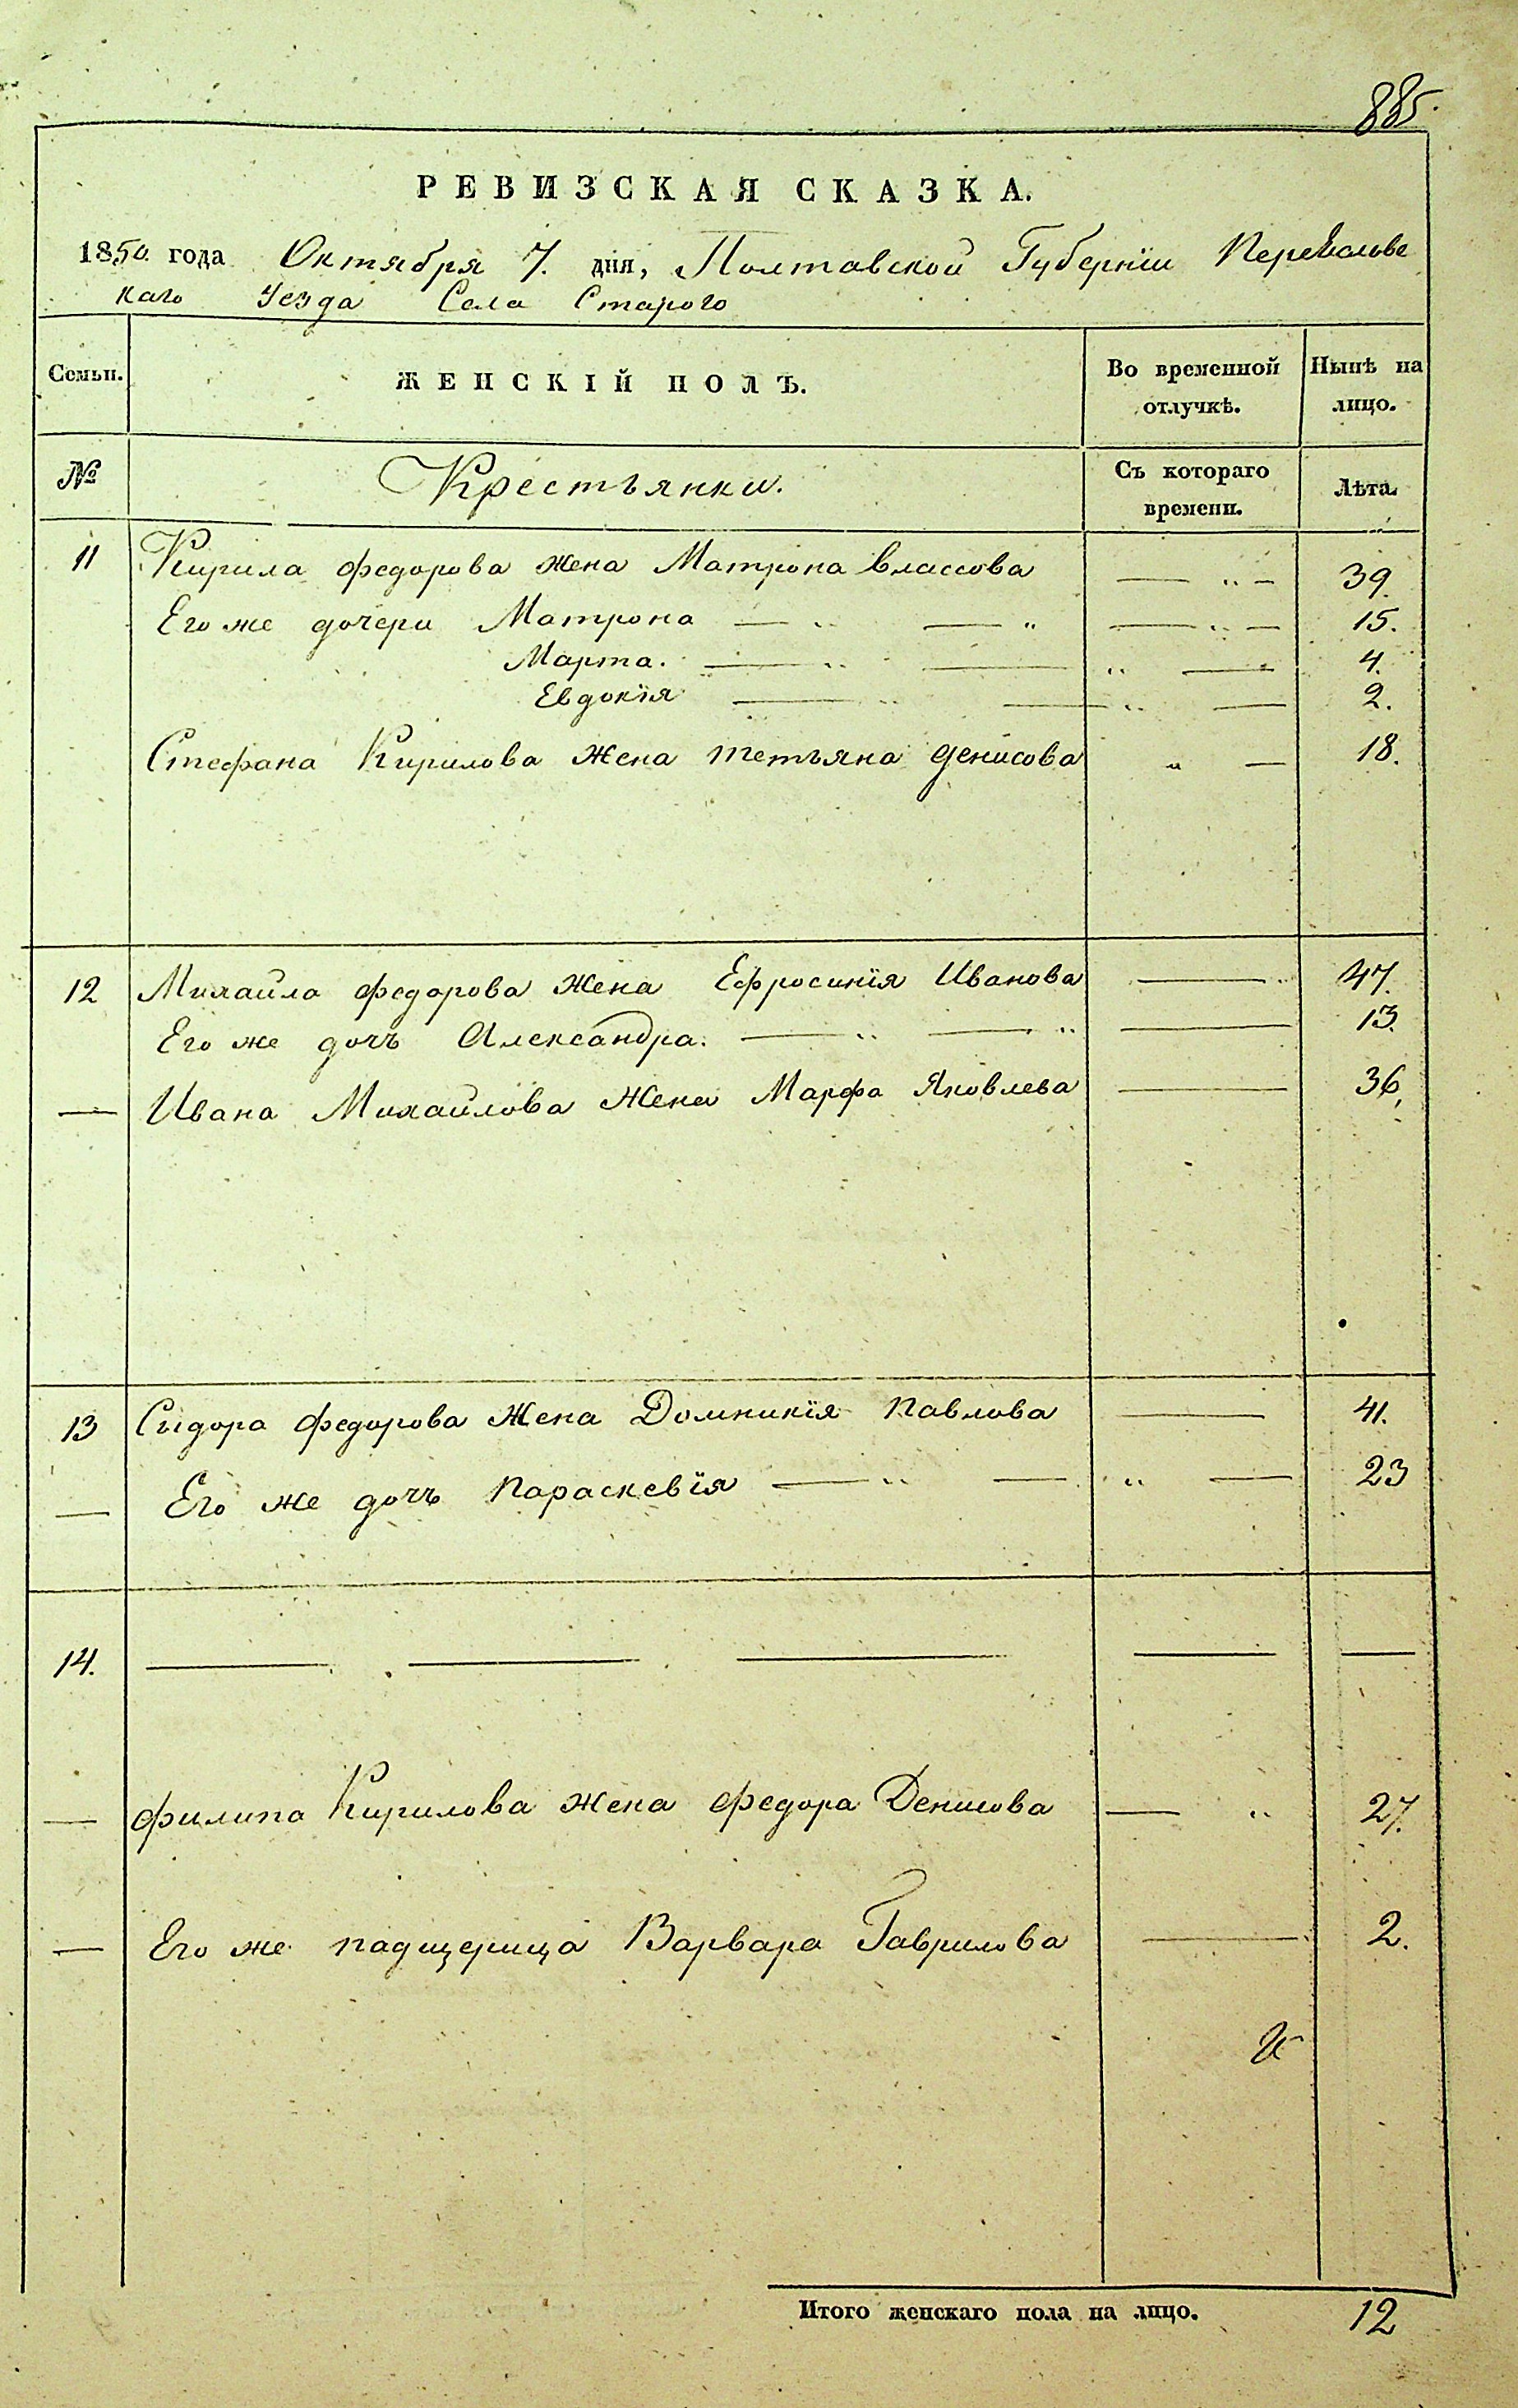 885.
РЕВИЗСКАЯ СКАЗКА.
1850. года Октября 7. дня, Полтавской Губернїи Переяславс
каго Уезда Села Старого
Семьи. ЖЕНСКІЙ ПОЛЪ. Во временной отлучкѣ. Нынѣ на лицо.
№ Крестьянки. Съ котораго времени. Лѣта.
11 Кирила Федорова жена Матрона Влассова — „ — 39.
Его же дочери Матрона — „ — „ — „ — 15.
Марта. — „ — „ — 4.
Евдокїя — „ — „ — 2.
Стефана Кирилова жена Тетьяна Денисова „ — 18.
12 Михайла Федорова жена Ефросинїя Иванова — 47.
Его же дочь Александра. — „ — „ — 13.
— Ивана Михайлова жена Марфа Яковлева — 36,
13 Сидора Федорова жена Домникїя Павлова — 41.
— Его же дочь Параскевїя — „ — „ — 23
14. — — — — —
— Филипа Кирилова жена Федора Денисова — „ 27.
— Его же падщерица Варвара Гаврилова — 2.
Итого женскаго пола на лицо. 12